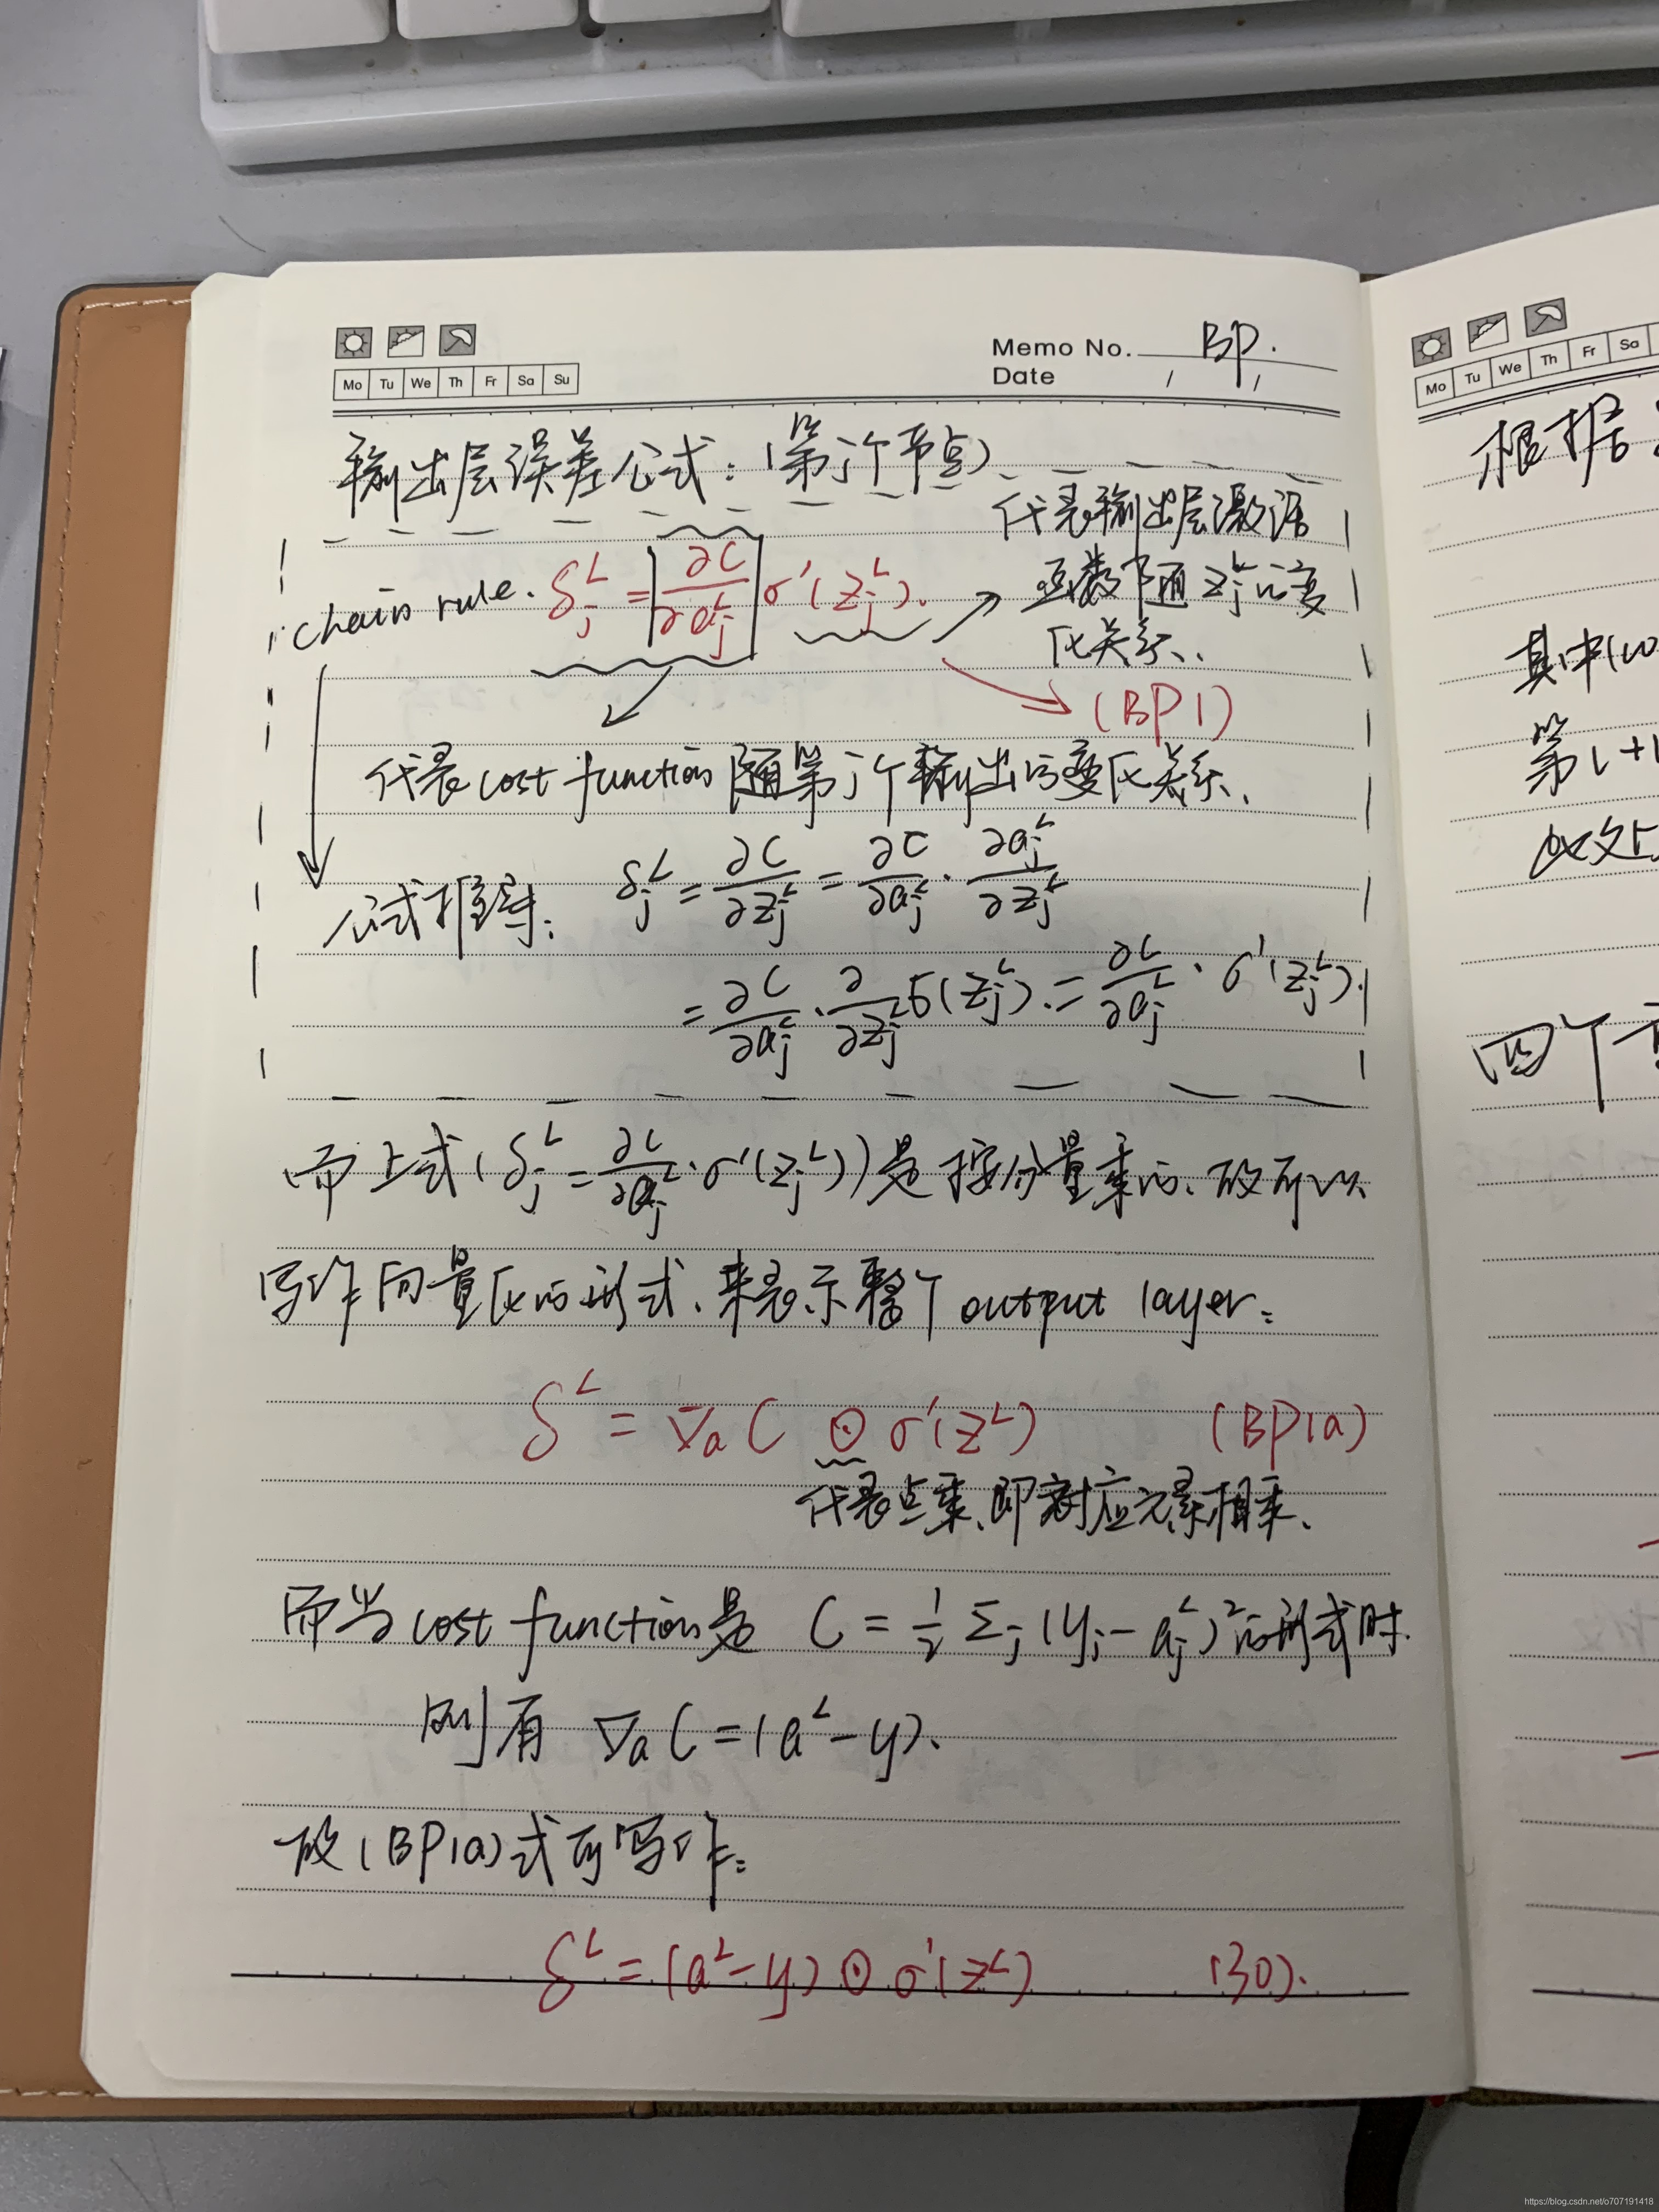 Memo No. BP.
Mo Tu We Th Fr Sa Su
Date / /
输出层误差公式：(第j个节点)
代表输出层激活
chain rule. δ_j^L = |∂C/∂a_j^L| σ'(z_j^L).
函数随z_j^L的变
化关系.
(BP1)
代表cost function随第j个输出的变化关系.
公式推导: δ_j^L = ∂C/∂z_j^L = ∂C/∂a_j^L · ∂a_j^L/∂z_j^L
= ∂C/∂a_j^L · ∂/∂z_j^L σ(z_j^L). = ∂C/∂a_j^L · σ'(z_j^L).
而上式(δ_j^L = ∂C/∂a_j^L · σ'(z_j^L))是按分量乘的. 故可以
写作向量化的形式. 来表示整个output layer:
δ^L = ∇_a C ⊙ σ'(z^L) (BP1a)
代表点乘.即对应元素相乘.
而当cost function是 C = 1/2 Σ_j (y_j - a_j^L)^2的形式时.
则有 ∇_a C = (a^L - y).
故(BP1a)式可写作:
δ^L = (a^L - y) ⊙ σ'(z^L) (30).
Mo Tu We Th Fr Sa
根据
其中(w
第l+1
四个
https://blog.csdn.net/o707191418